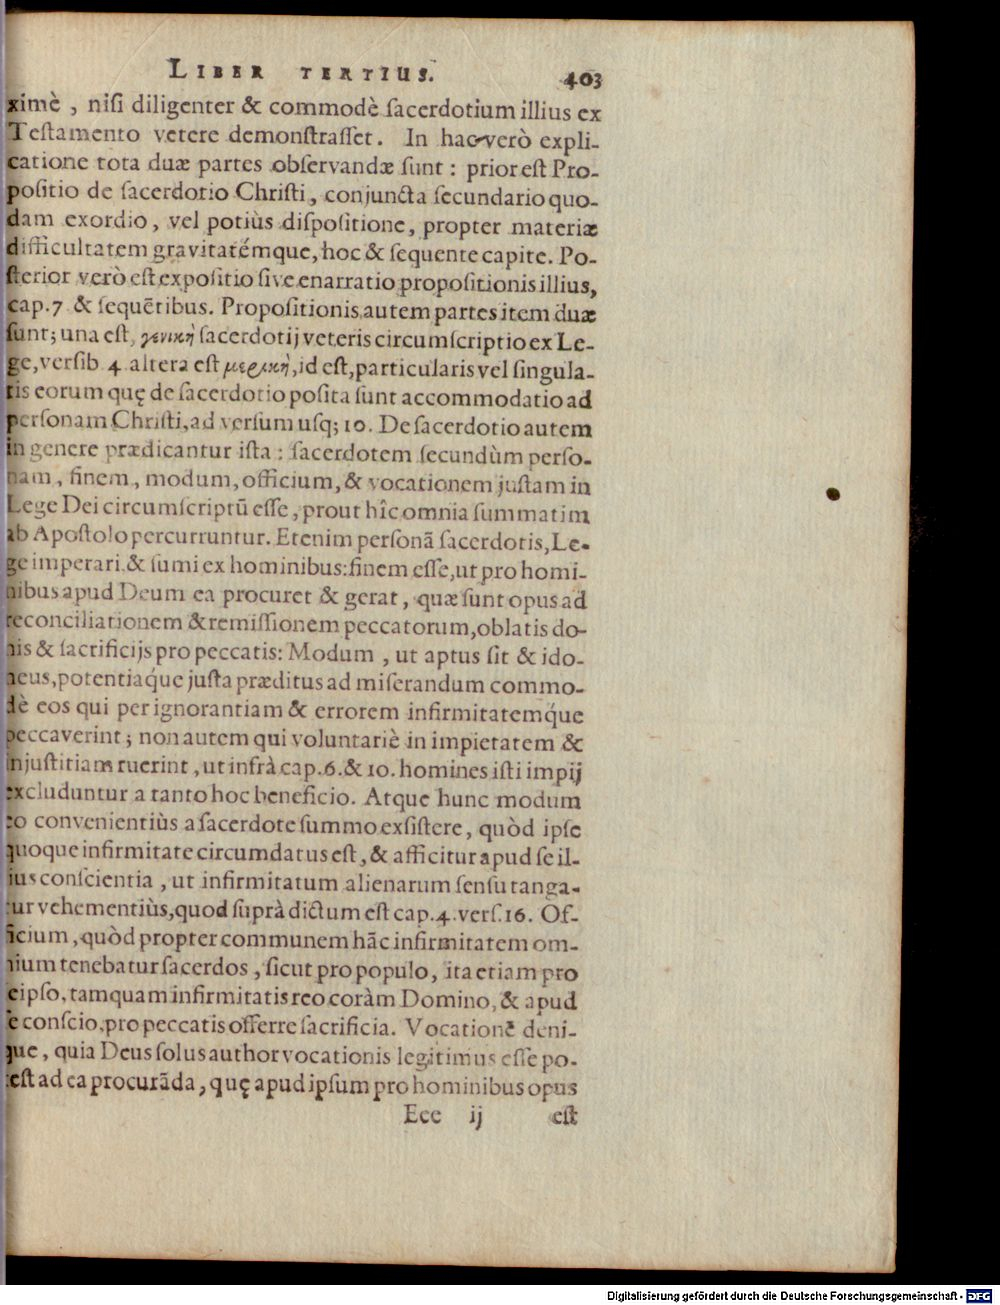 LIBER TERTIUS. 403
ximè, nisi diligenter & commodè sacerdotium illius ex
Testamento vetere demonstrasset. In hac verò expli-
catione tota duæ partes observandæ sunt: prior est Pro-
positio de sacerdotio Christi, conjuncta secundario quo-
dam exordio, vel potiùs dispositione, propter materiæ
difficultatem gravitatémque, hoc & sequente capite. Po-
sterior verò est expositio sive enarratio propositionis illius,
cap. 7 & sequētibus. Propositionis autem partes item duæ
sunt; una est, γενικὴ sacerdotij veteris circumscriptio ex Le-
ge, versib 4 altera est μερικὴ, id est, particularis vel singula-
ris eorum quę de sacerdotio posita sunt accommodatio ad
personam Christi, ad versum usq; 10. De sacerdotio autem
in genere prædicantur ista: sacerdotem secundùm perso-
nam, finem, modum, officium, & vocationem justam in
Lege Dei circumscriptū esse, prout hîc omnia summatim
ab Apostolo percurruntur. Etenim personā sacerdotis, Le-
ge imperari & sumi ex hominibus: finem esse, ut pro homi-
nibus apud Deum ea procuret & gerat, quæ sunt opus ad
reconciliationem & remissionem peccatorum, oblatis do-
nis & sacrificijs pro peccatis: Modum, ut aptus sit & ido-
neus, potentiaq́ue justa præditus ad miserandum commo-
dè eos qui per ignorantiam & errorem infirmitatemq́ue
peccaverint; non autem qui voluntariè in impietatem &
injustitiam ruerint, ut infrà cap. 6. & 10. homines isti impij
excluduntur a tanto hoc beneficio. Atque hunc modum
eo convenientiùs a sacerdote summo exsistere, quòd ipse
quoque infirmitate circumdatus est, & afficitur apud se il-
lius conscientia, ut infirmitatum alienarum sensu tanga-
tur vehementiùs, quod suprà dictum est cap. 4. vers. 16. Of-
ficium, quòd propter communem hāc infirmitatem om-
nium tenebatur sacerdos, sicut pro populo, ita etiam pro
seipso, tamquam infirmitatis reo coràm Domino, & apud
se conscio, pro peccatis offerre sacrificia. Vocationē deni-
que, quia Deus solus author vocationis legitimus esse po-
test ad ea procurāda, quę apud ipsum pro hominibus opus
Eee ij est
Digitalisierung gefördert durch die Deutsche Forschungsgemeinschaft - DFG